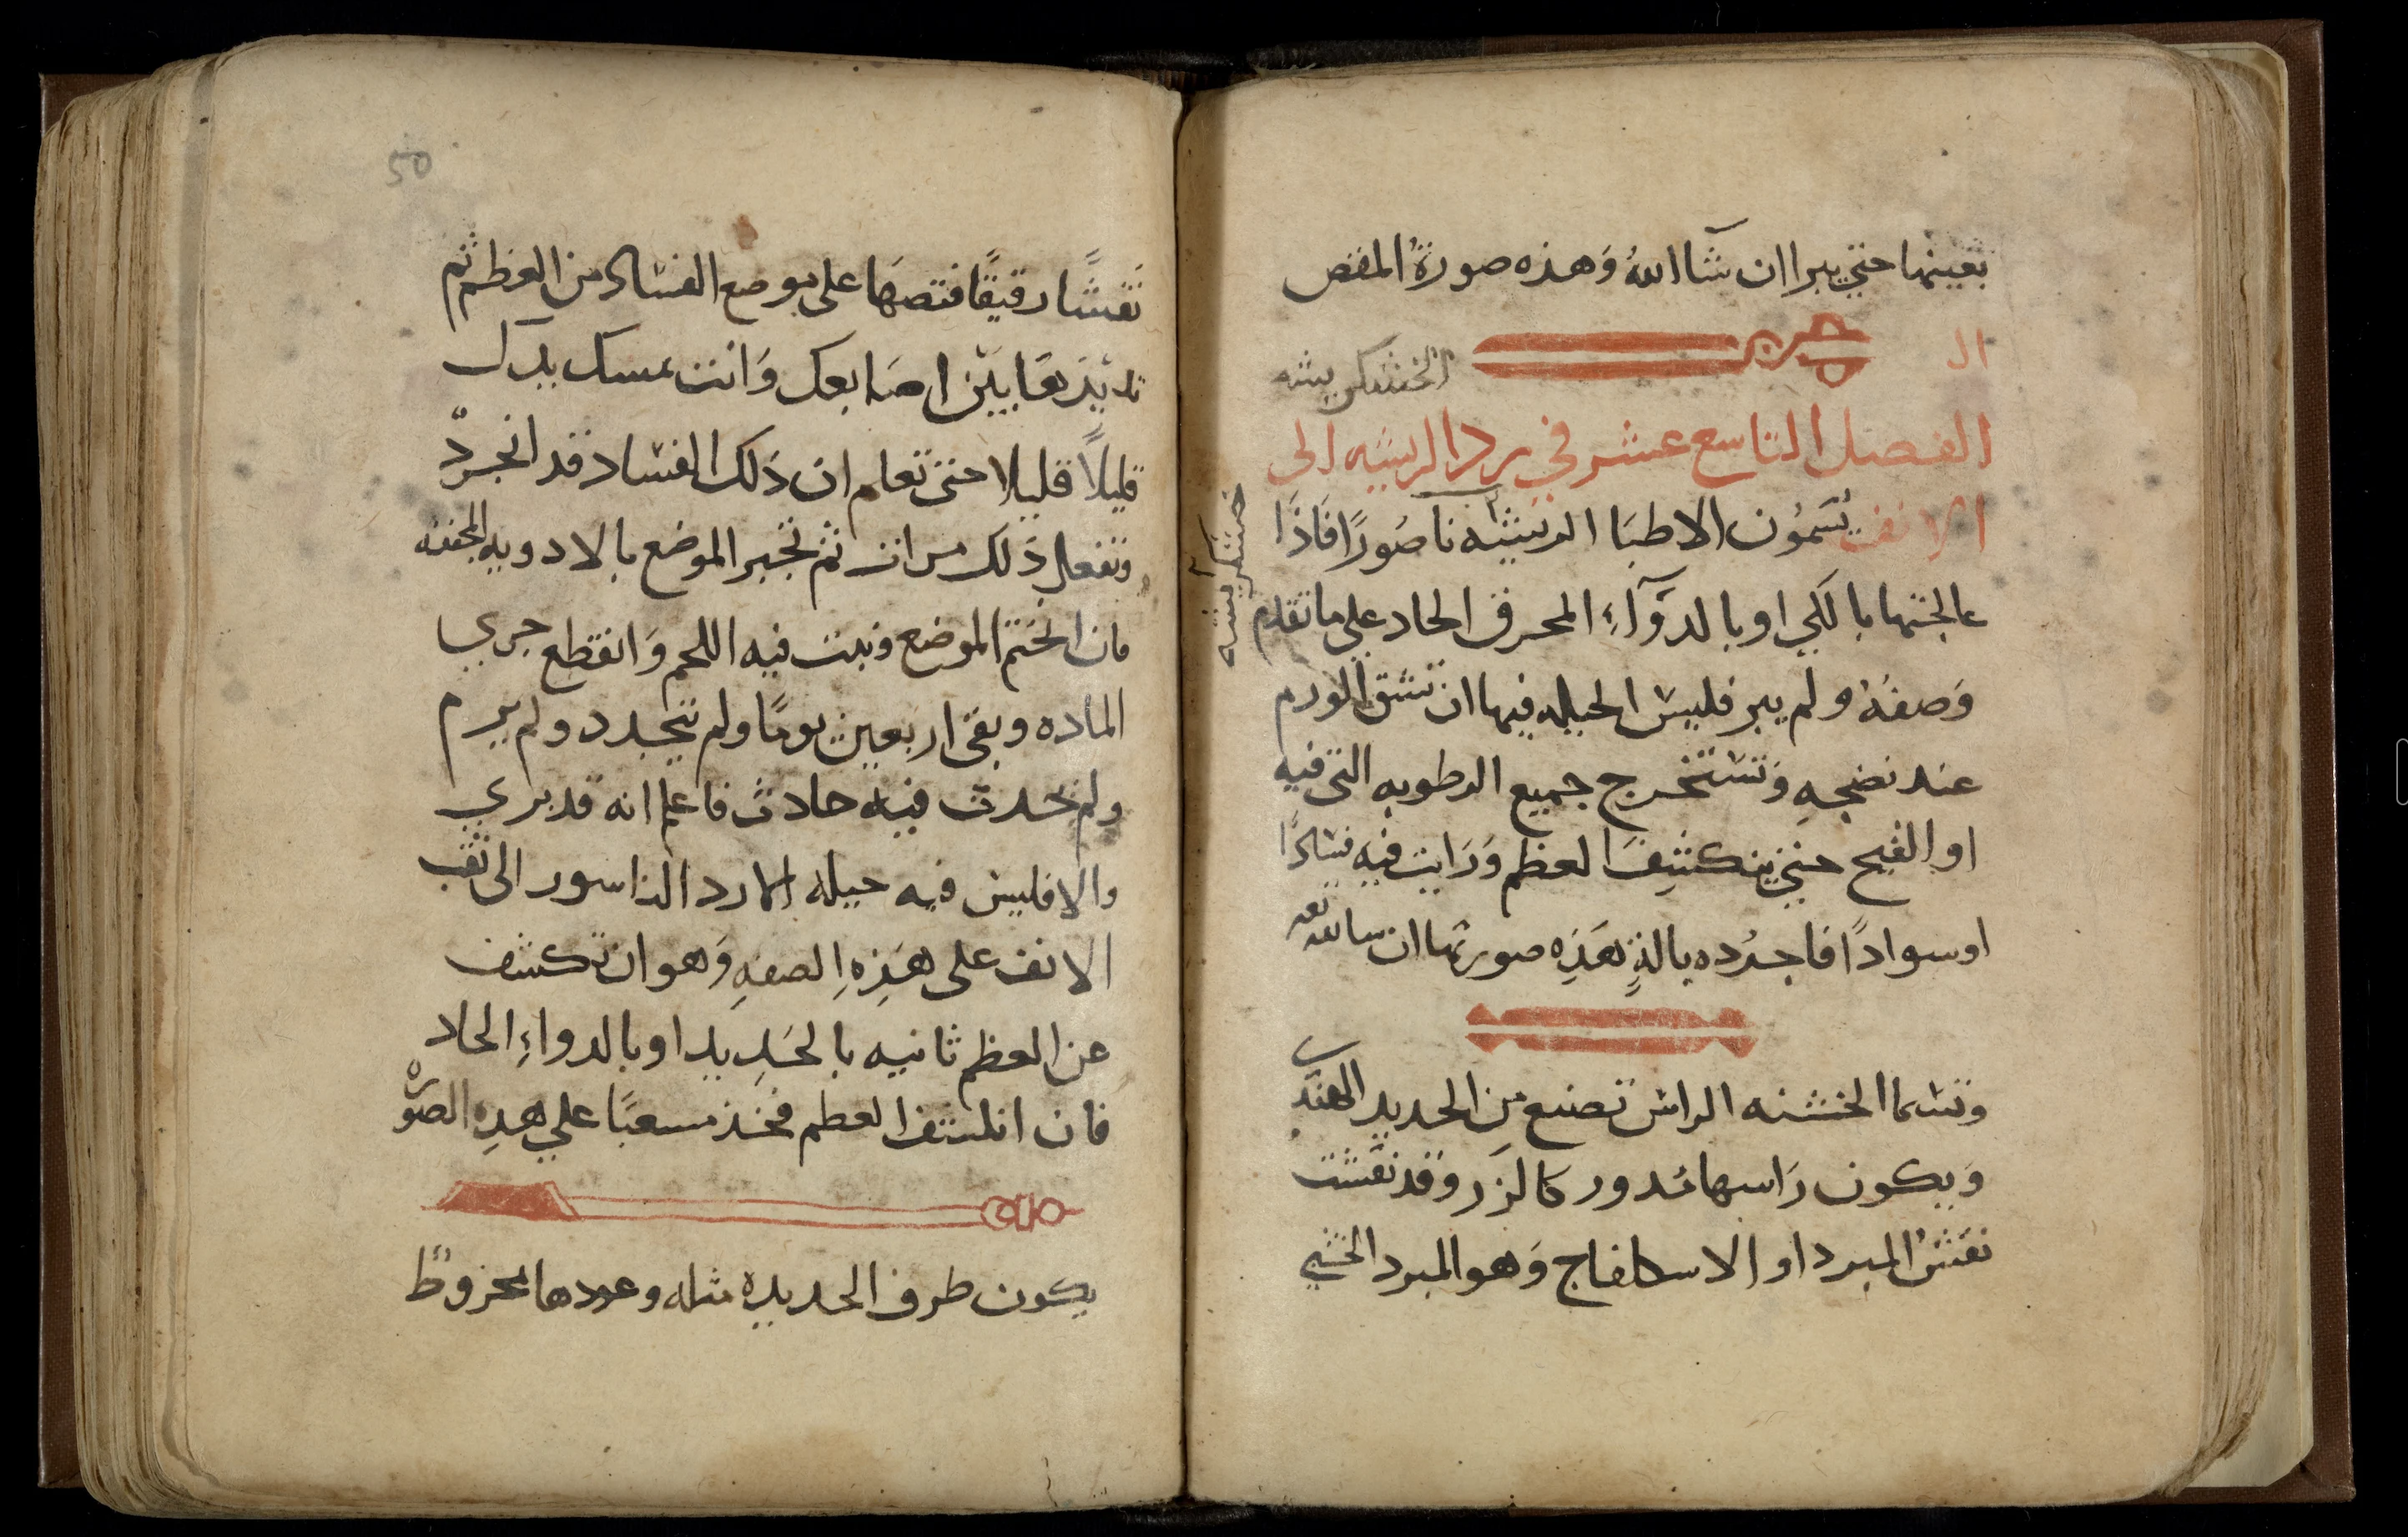 بعينها حتي يبرا ان شآ الله وَهذه صورةُ المقص
ال
الخشكريشه
الفصل التاسع عشر في رد الريشه الى
الانف يُسَموُن الاطبَا الريشه ناصُورًا فَاذَا
خشكريشه
عالجتها بالكي او بالدوَآءِ المحرق الحاد علي ما تقدم
وَصفهُ ولم يبر فليس الحيله فيها ان تشق الورم
عند نضجهِ وَتستخرج جميع الرطوبه التى فيه
او القيح حتي ينكشِفَ العظم وَرَايت فيه فسادًا
او سوادًا فاجرُده بالةٍ هَذِه صورتها ان
وتسما الخشنه الراس تصنع مِن الحديد الهندي
وَيكون رَاسها مُدور كالزِر وقد نقشت
نقشُ المبرد او الاسكلفاج وَهو المبرد الخشي
50
نقشًا رقيقًا فتصهَا على موضع الفساد من العظم ثم
تديرَهَا بَيْن اصَابعك وَانت تمسك يدك
قليلاً قليلا حتى تعلم ان ذلك الفساد قد انجردّ
وتفعل ذلك مرات ثم تجبر الموضع بالادويه المجففه
فان الختم الموضع ونبت فيه اللحم وَانقطع جري
الماده وبقى اربعين يومًا ولم تتجدد ولم يرم
ولم يحدث فيه حادث فاعلم انه قد بري
والا فليس فيه حيله الا رد الناسور الى ثقب
الانف على هَذِهِ الصفهِ وَهو ان تكشف
عن العظم ثانيه بالحَدِيد او بالدواءِ الحاد
فان انكشف العظم فخذ مسعبًا علي هذِه الصوره
يكون طرف الحديده مثله وعودها مخروطً